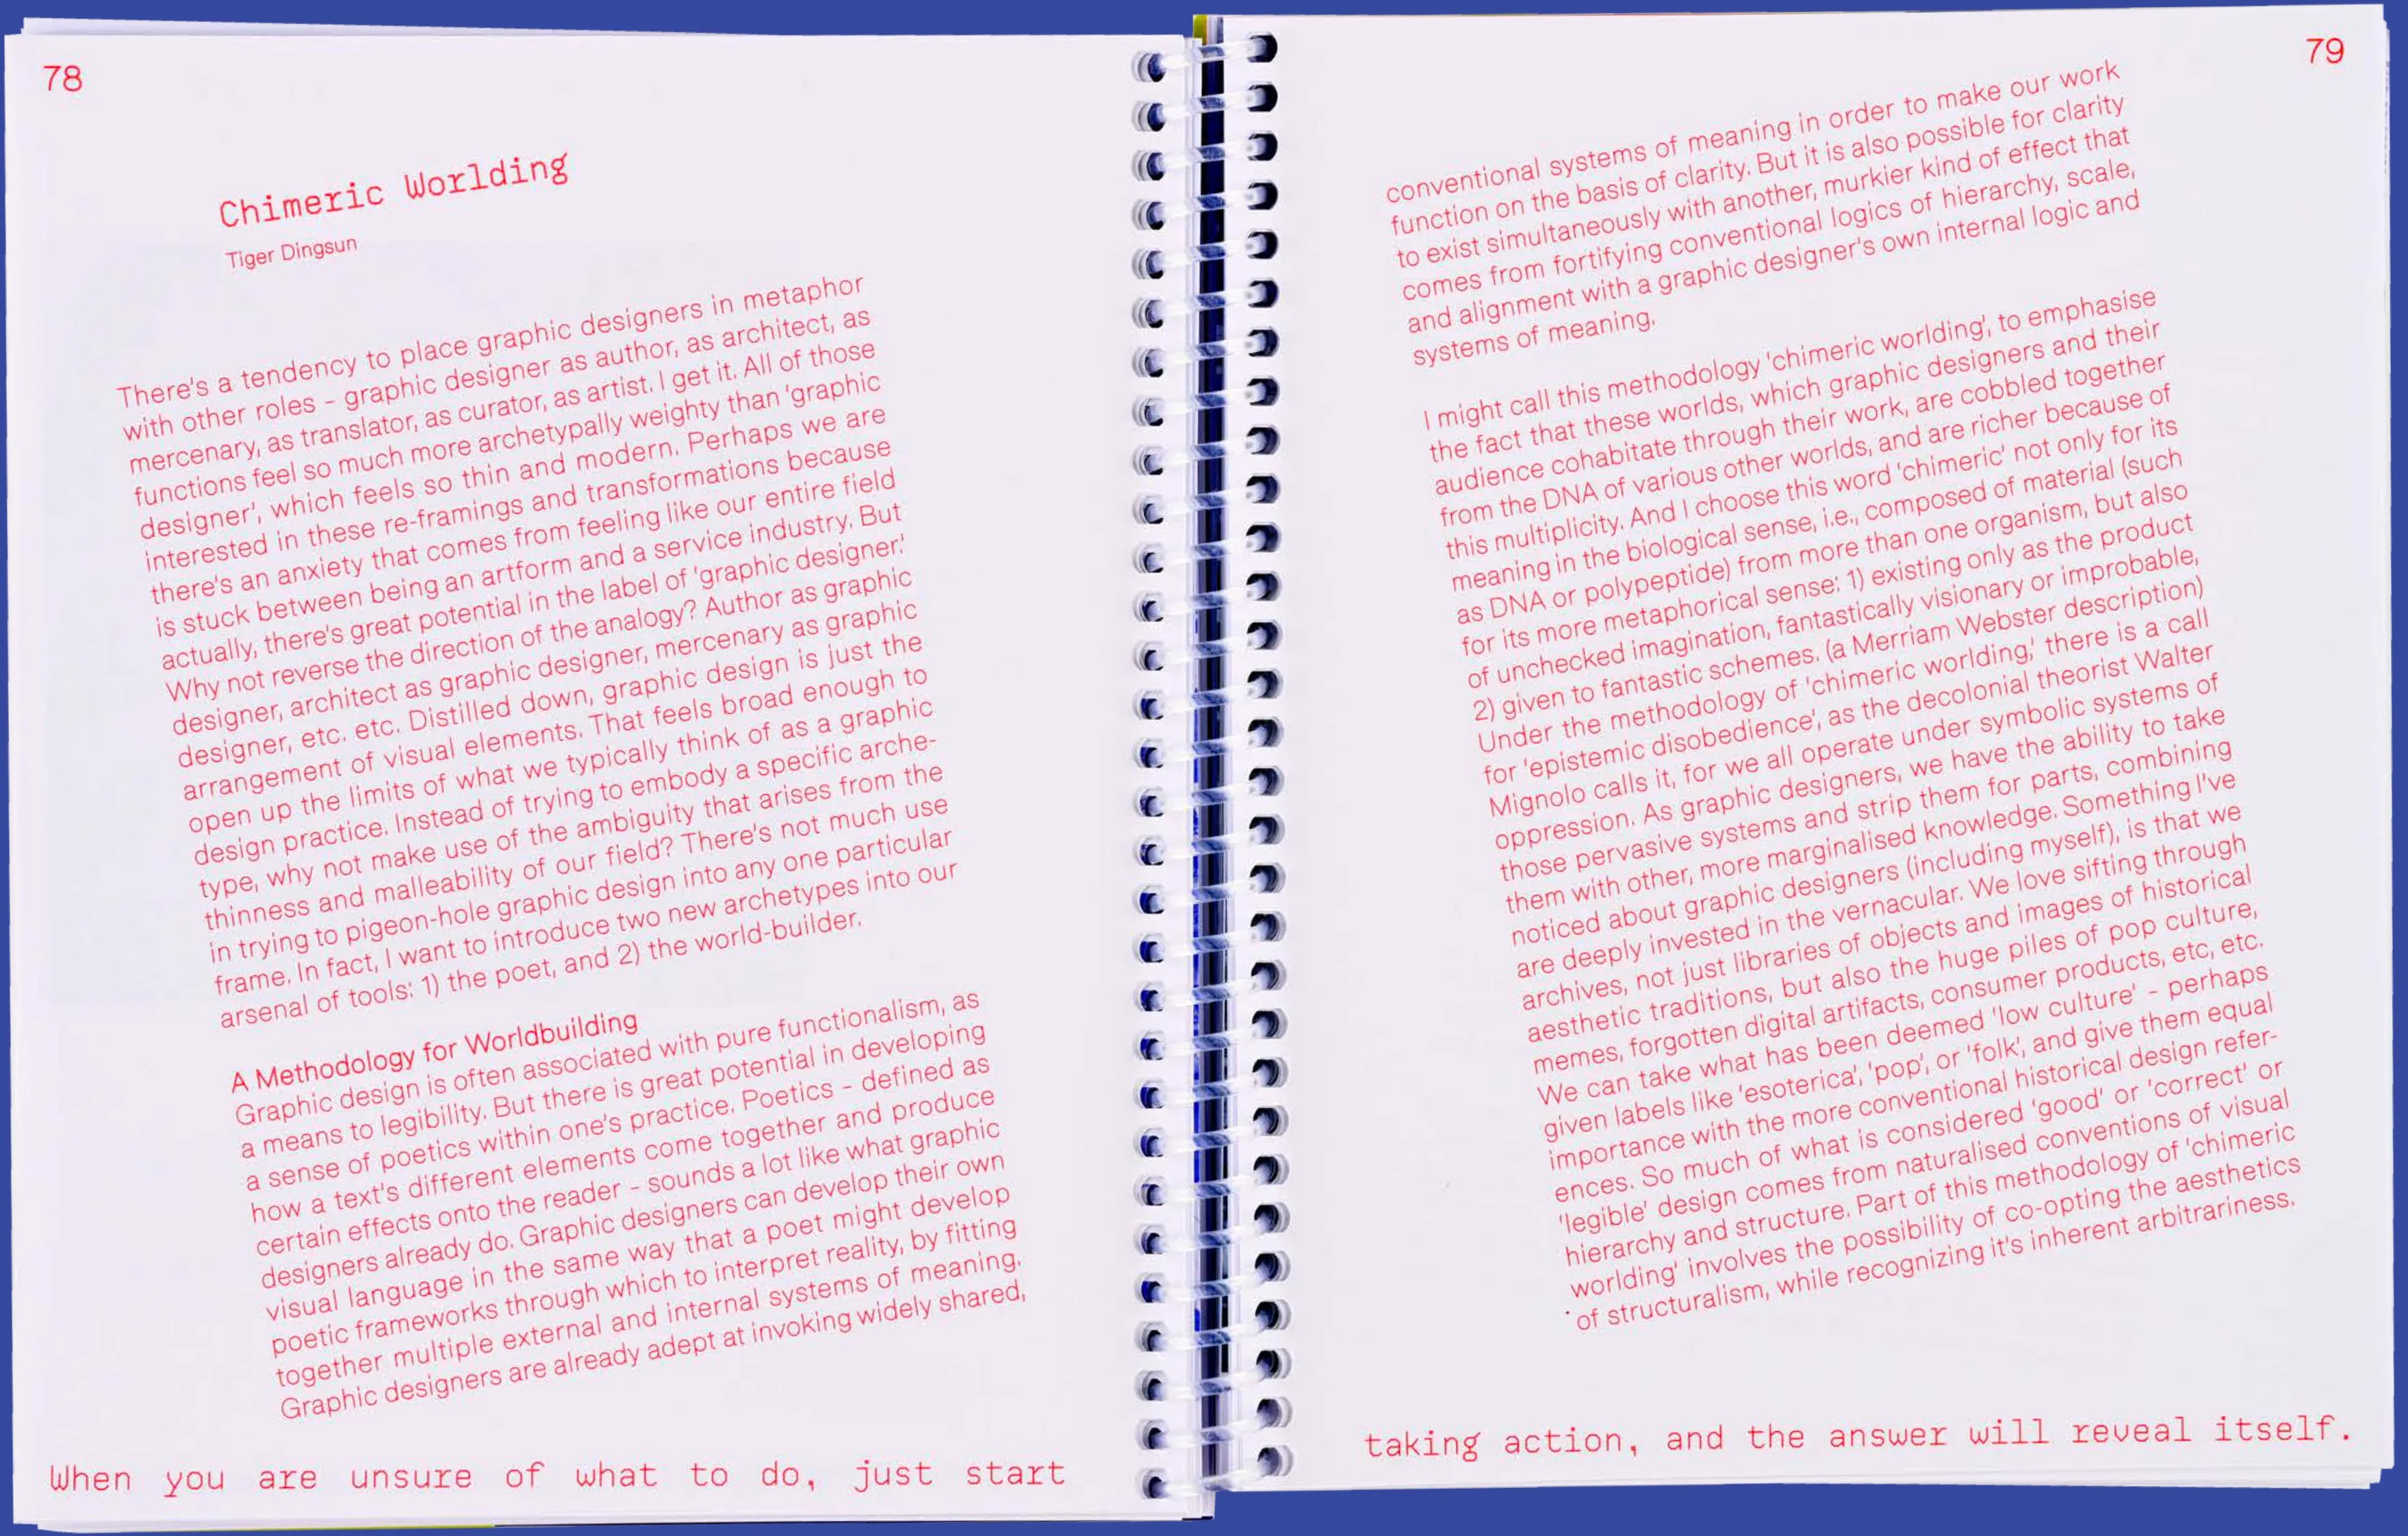 78
Chimeric Worlding
Tiger Dingsun
There's a tendency to place graphic designers in metaphor
with other roles – graphic designer as author, as architect, as
mercenary, as translator, as curator, as artist. I get it. All of those
functions feel so much more archetypally weighty than 'graphic
designer', which feels so thin and modern. Perhaps we are
interested in these re-framings and transformations because
there's an anxiety that comes from feeling like our entire field
is stuck between being an artform and a service industry. But
actually, there's great potential in the label of 'graphic designer.'
Why not reverse the direction of the analogy? Author as graphic
designer, architect as graphic designer, mercenary as graphic
designer, etc. etc. Distilled down, graphic design is just the
arrangement of visual elements. That feels broad enough to
open up the limits of what we typically think of as a graphic
design practice. Instead of trying to embody a specific arche-
type, why not make use of the ambiguity that arises from the
thinness and malleability of our field? There's not much use
in trying to pigeon-hole graphic design into any one particular
frame. In fact, I want to introduce two new archetypes into our
arsenal of tools: 1) the poet, and 2) the world-builder.
A Methodology for Worldbuilding
Graphic design is often associated with pure functionalism, as
a means to legibility. But there is great potential in developing
a sense of poetics within one's practice. Poetics – defined as
how a text's different elements come together and produce
certain effects onto the reader – sounds a lot like what graphic
designers already do. Graphic designers can develop their own
visual language in the same way that a poet might develop
poetic frameworks through which to interpret reality, by fitting
together multiple external and internal systems of meaning.
Graphic designers are already adept at invoking widely shared,
When you are unsure of what to do, just start
79
conventional systems of meaning in order to make our work
function on the basis of clarity. But it is also possible for clarity
to exist simultaneously with another, murkier kind of effect that
comes from fortifying conventional logics of hierarchy, scale,
and alignment with a graphic designer's own internal logic and
systems of meaning.
I might call this methodology 'chimeric worlding', to emphasise
the fact that these worlds, which graphic designers and their
audience cohabitate through their work, are cobbled together
from the DNA of various other worlds, and are richer because of
this multiplicity. And I choose this word 'chimeric' not only for its
meaning in the biological sense, i.e., composed of material (such
as DNA or polypeptide) from more than one organism, but also
for its more metaphorical sense: 1) existing only as the product
of unchecked imagination, fantastically visionary or improbable,
2) given to fantastic schemes. (a Merriam Webster description)
Under the methodology of 'chimeric worlding,' there is a call
for 'epistemic disobedience', as the decolonial theorist Walter
Mignolo calls it, for we all operate under symbolic systems of
oppression. As graphic designers, we have the ability to take
those pervasive systems and strip them for parts, combining
them with other, more marginalised knowledge. Something I've
noticed about graphic designers (including myself), is that we
are deeply invested in the vernacular. We love sifting through
archives, not just libraries of objects and images of historical
aesthetic traditions, but also the huge piles of pop culture,
memes, forgotten digital artifacts, consumer products, etc, etc.
We can take what has been deemed 'low culture' – perhaps
given labels like 'esoterica', 'pop', or 'folk', and give them equal
importance with the more conventional historical design refer-
ences. So much of what is considered 'good' or 'correct' or
'legible' design comes from naturalised conventions of visual
hierarchy and structure. Part of this methodology of 'chimeric
worlding' involves the possibility of co-opting the aesthetics
of structuralism, while recognizing it's inherent arbitrariness.
taking action, and the answer will reveal itself.